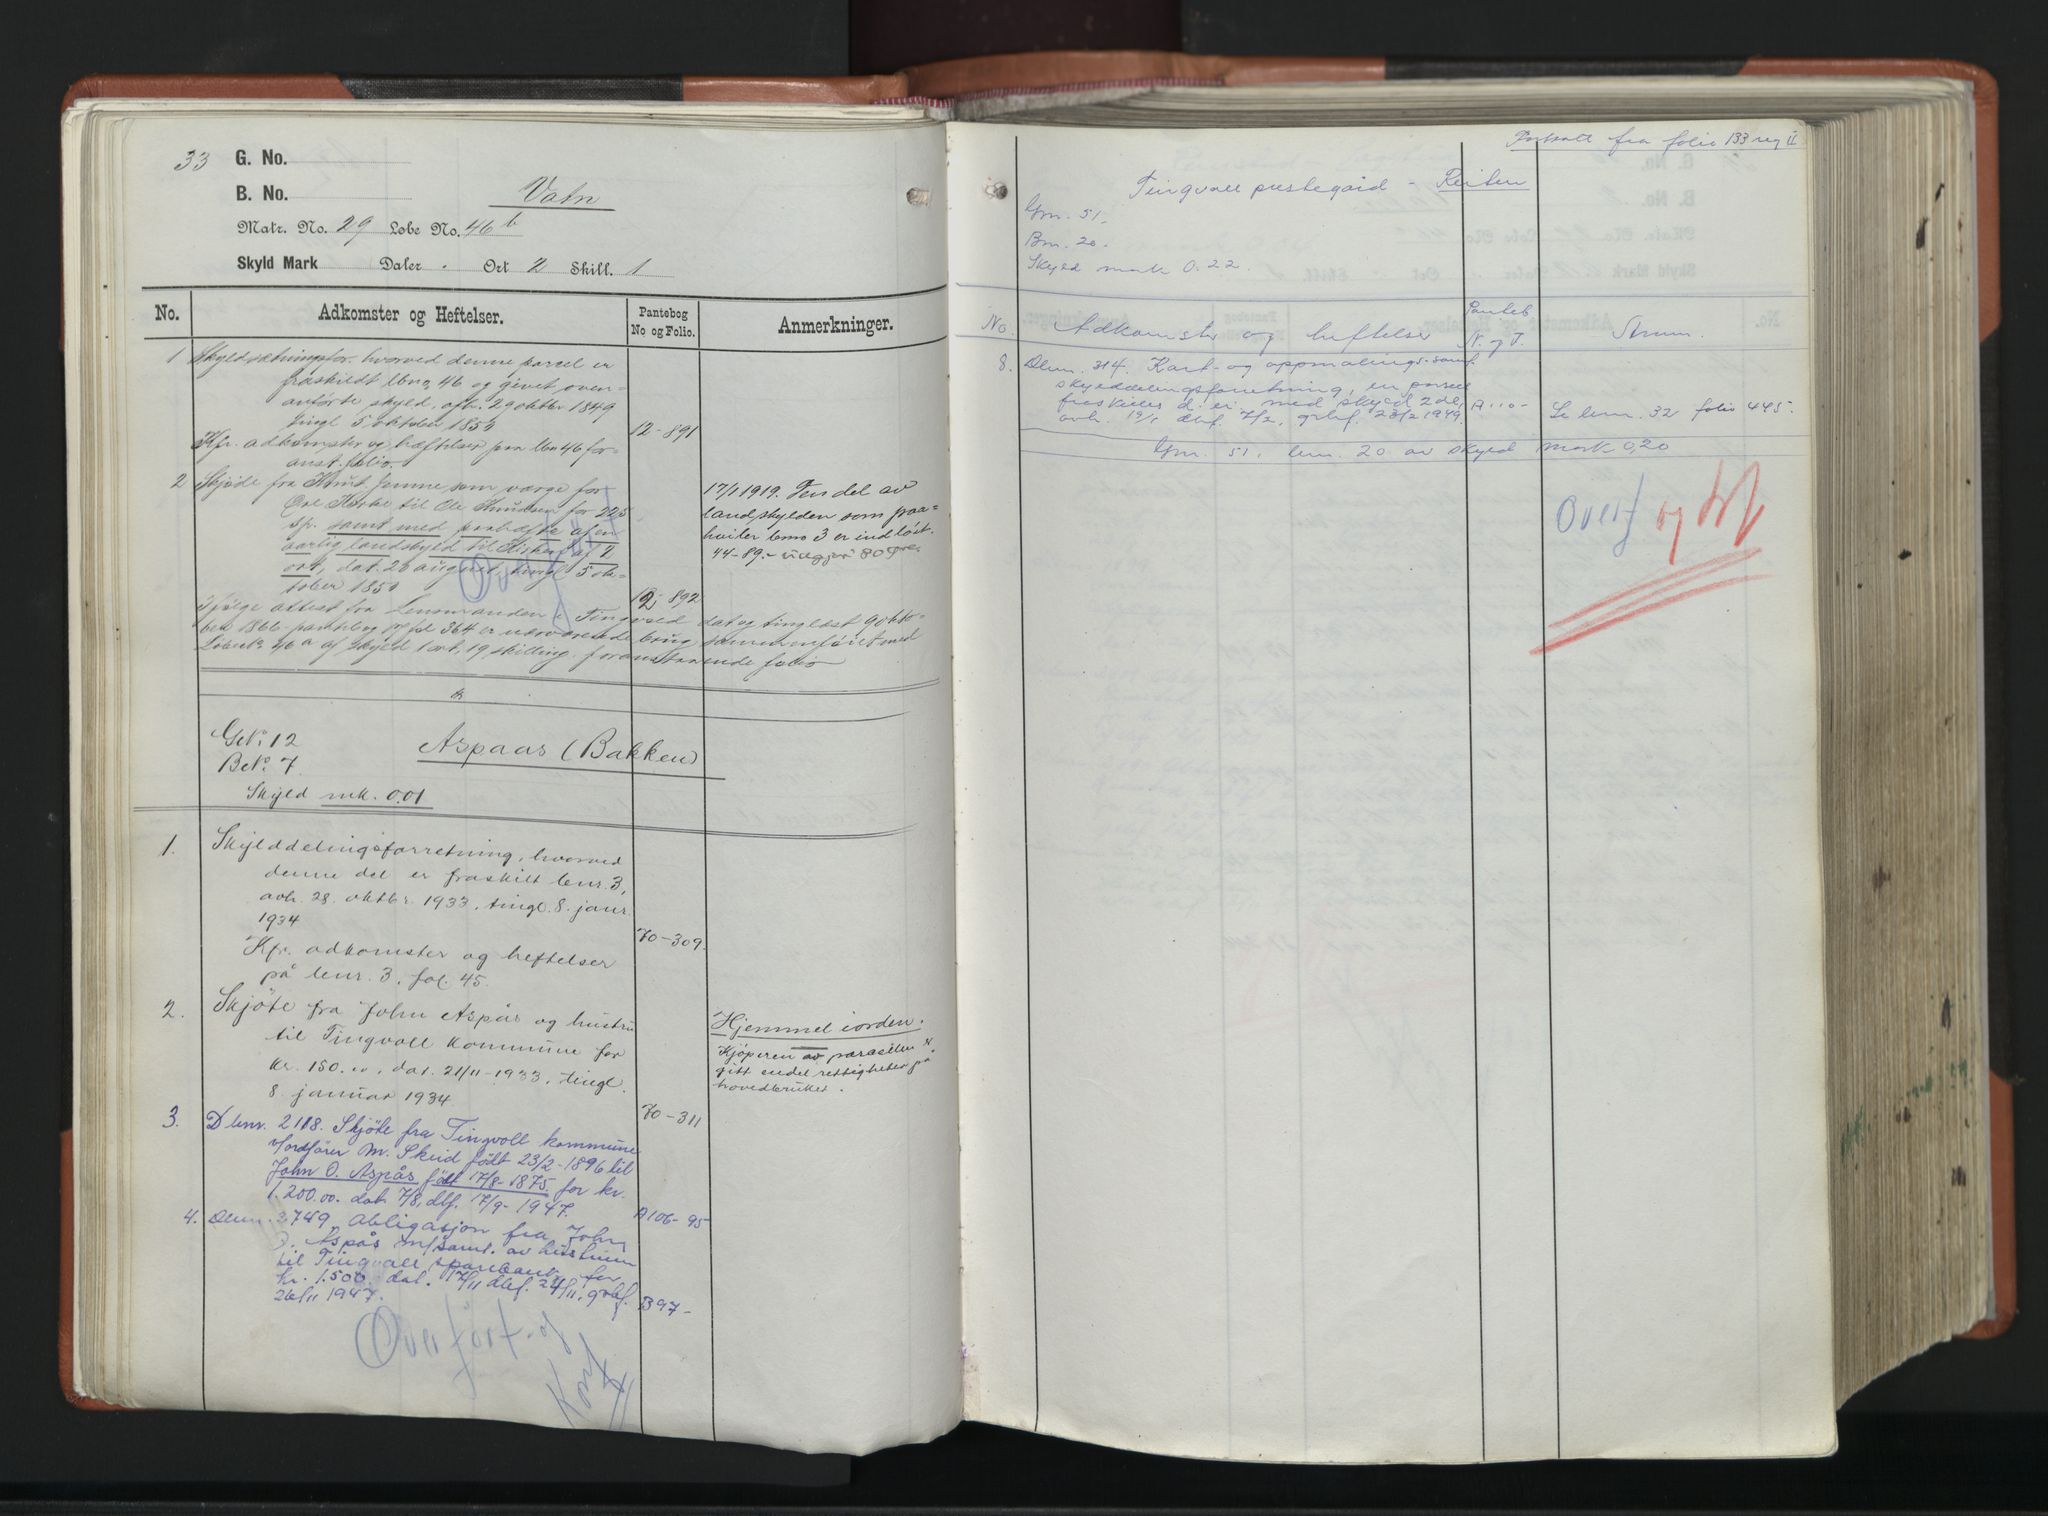 33
G. No.
B. No.
Vatn
Matr. No. 29 Løbe No. 46 b
Skyld Mark Daler - Ort 2 Skill. 1
No.
Adkomster og Heftelser.
Pantebog No og Folio.
Anmerkninger.
1 Skyldsætningsfor. hvorved denne parcel er
fraskildt lbno 46 og givet oven-
anførte skyld, afh. 29 oktbr 1849
tingl 5 oktober 1850
12-891
Kfr. adkomster og hæftelser paa lbn 46 for-
anst. folio.
2 Skjøde fra Knut som værge for
til Ole Knudsen for 225
Sp. samt med paahæfte af en
aarlig landskyld til af 2
ort, dat. 20 august, tingl 5 ok-
tober 1850
12-892
17/1 1919. Den del av
landskylden som paa-
hviler bno 3 er indløst.
44-89.- 
Ifølge attest fra Lensmanden i Tingvold dat og tinglæst 9 okto-
ber 1866 pantebog 17 fol 364 er nærværende brug sammenføiet med
Løbenr. 46 a af skyld 1 ort, 19 skilling. foranstaaende folio
G.No. 12
B.No. 7
Aspaas (Bakken)
Skyld mk. 0.01
1. Skylddelingsforretning, hvorved
denne del er fraskilt bnr. 3,
avh. 28. oktbr. 1933, tingl. 8. janr.
1934
70-309.
Kfr. adkomster og heftelser
på bnr. 3, fol. 45.
2. Skjøte fra John Aspås og hustru
til Tingvoll kommune for
kr. 150.00, dat. 21/11-1933, tingl.
8. januar 1934
70-311
Hjemmel i orden.
Kjøperen av parsellen er
gitt endel rettigheter på
hovedbruket.
3. Dbnr. 2118. Skjøte fra Tingvoll kommune
v/ordfører M. Skeid født 23/2-1896 til
John O. Aspås født 17/8-1875 for kr.
1.200.00. dat 7/8, dbf. 17/9-1947.
A106-95
4. Dbnr. 3749 Obligasjon fra John
O. Aspås m/samt. av hustruen
til Tingvoll sparebank for
kr. 1.500. dat. 17/11 dbf. 24/11, grbf.
26/11 1947.
B97-
Overført og
Konf
Fortsatt fra folio 133 reg II
Tingvoll prestegård - Reiten
Gnr. 51.
Bnr. 20.
Skyld mark 0.22.
No.
Adkomster og heftelser
Panteb
N. og F.
Anm.
8. Dbnr. 314. Kart- og oppmålings- samt
skylddelingsforretning, en parsell
fraskilles d.e. med skyld 2 øre,
avh. 19/1 dbf. 7/2, grbf. 23/2 1949.
A110-
Se bnr. 32 folio 445.
Gnr. 51, bnr. 20 av skyld mark 0,20
Overf og